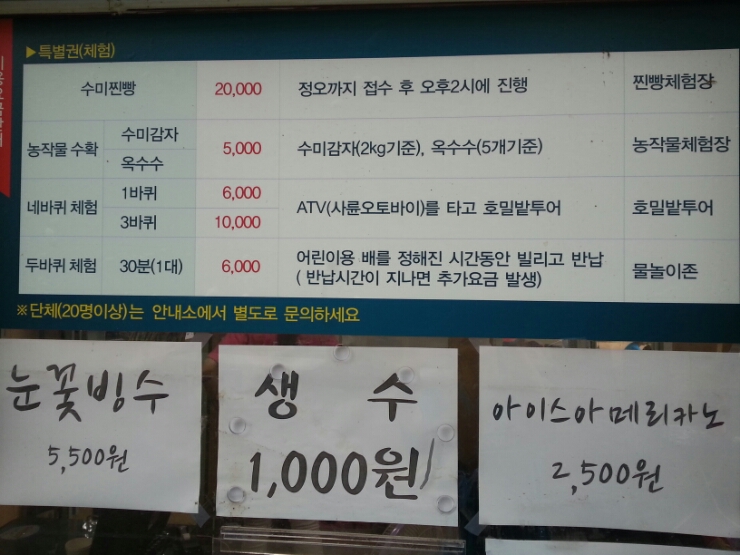 ▶특별권(체험)
수미찐빵 20,000 정오까지 접수 후 오후2시에 진행 찐빵체험장
농작물 수확 수미감자 옥수수 5,000 수미감자(2kg기준), 옥수수(5개기준) 농작물체험장
네바퀴 체험 1바퀴 6,000 3바퀴 10,000 ATV(사륜오토바이)를 타고 호밀밭투어 호밀밭투어
두바퀴 체험 30분(1대) 6,000 어린이용 배를 정해진 시간동안 빌리고 반납 물놀이존
( 반납시간이 지나면 추가요금 발생)
※단체(20명이상)는 안내소에서 별도로 문의하세요
눈꽃빙수
5,500원
생 수
1,000원
아이스아메리카노
2,500원